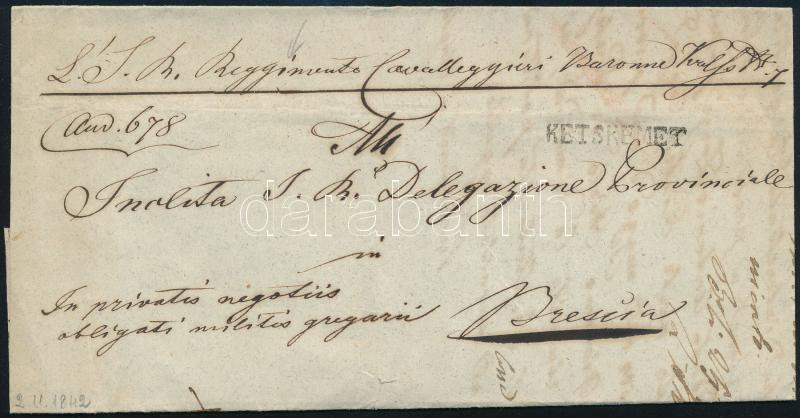 L'I. R. Reggimento Cavalleggieri Baronne
Aud. 678
KETSKEMET
All'
Inclita I. R. Delegazione Provinciale
darabanth
in
In privatis negotiis
obligati militis gregarii
Brescia
2 11. 1842